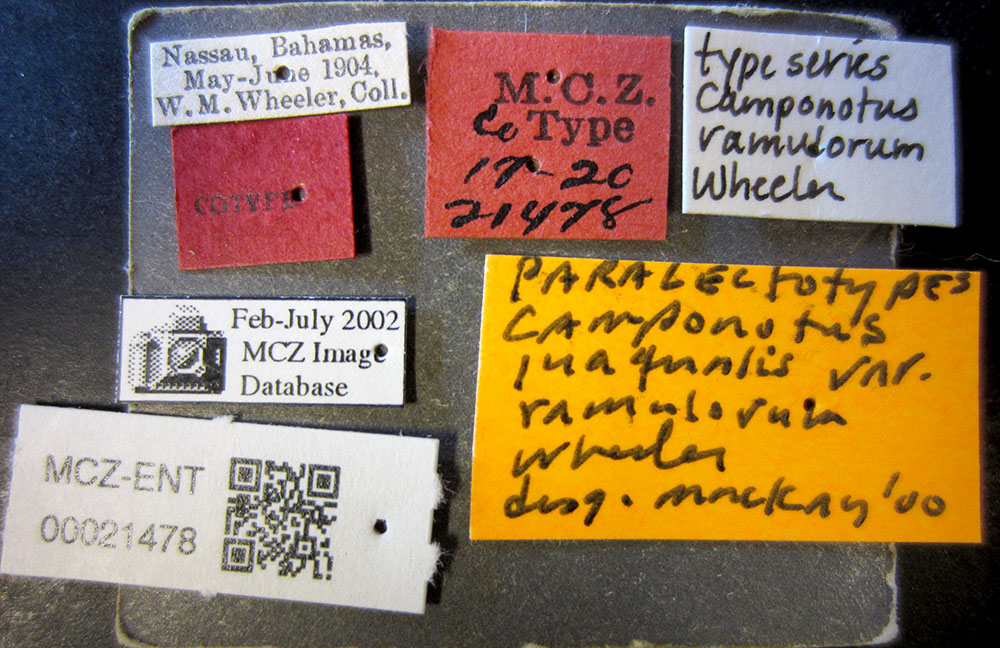 Nassau, Bahamas,
May-June 1904.
W. M. Wheeler, Coll.
COTYPE
M.C.Z.
Co Type
17-20
21478
type series
Camponotus
ramulorum
Wheeler
Feb-July 2002
MCZ Image
Database
MCZ-ENT
00021478
PARALECTOTYPES
CAMPONOTUS
inaequalis var.
ramulorum
wheeler
desg. MacKay '00